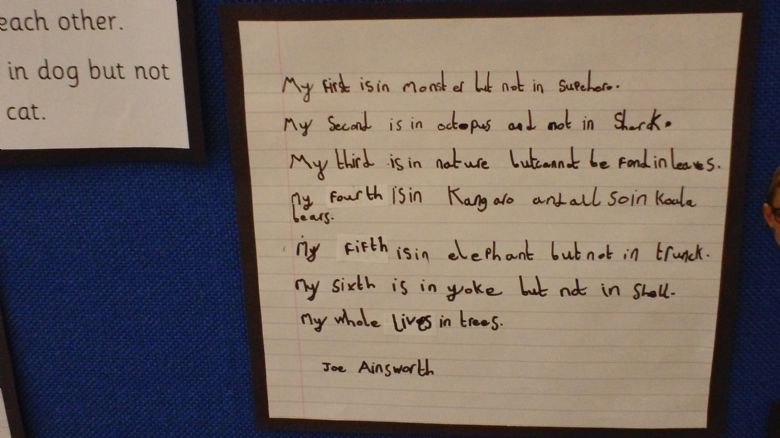 each other.
in dog but not
cat.
My first is in monster but not in supehero.
My second is in octopus and not in Shark.
My third is in nature but cannot be fond in leaves.
My fourth is in Kangaro and all so in koala
bears.
My fifth is in elephant but not in trunck.
My sixth is in yoke but not in Shell.
My whole lives in trees.
Joe Ainsworth